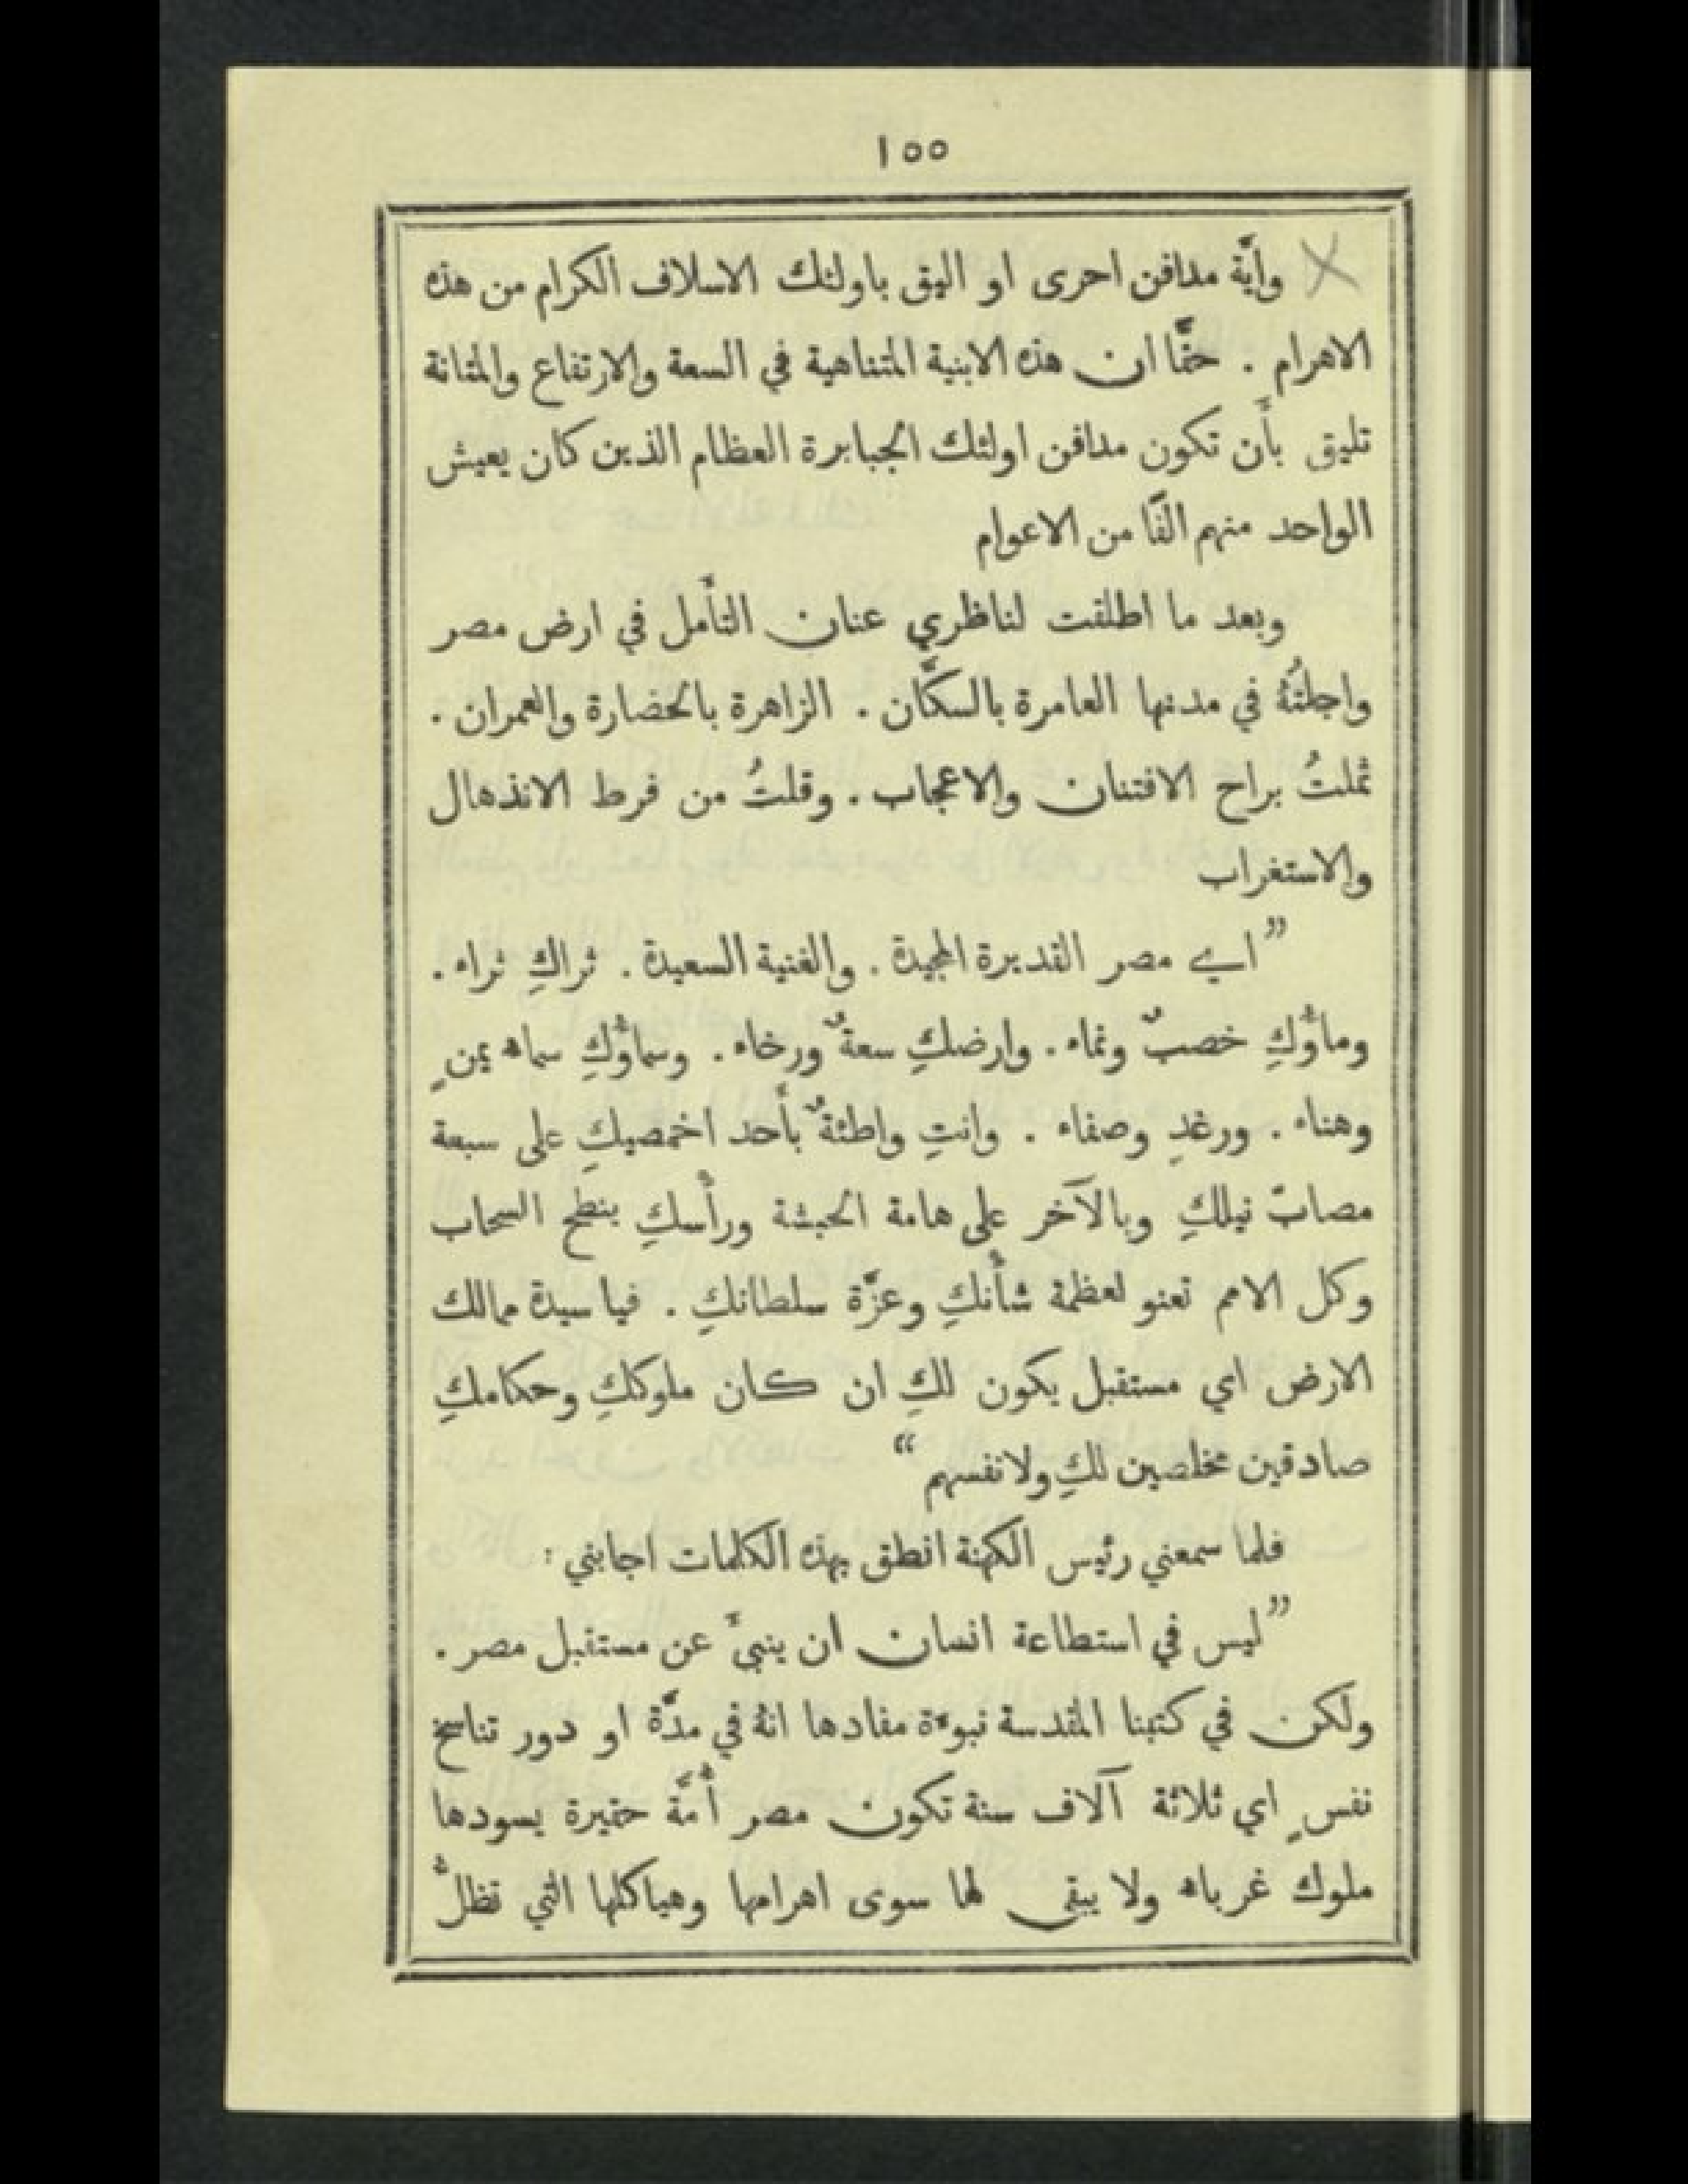 ١٥٥
وأيَّة مدافن احرى او اليق باولئك الاسلاف الكرام من هذه
الاهرام . حقًّا ان هذه الابنية المتناهية في السعة والارتفاع والمتانة
تليق بأَن تكون مدافن اولئك الجبابرة العظام الذين كان يعيش
الواحد منهم الفًا من الاعوام
وبعد ما اطلقت لناظري عنان التأَمل في ارض مصر
واجلتُهُ في مدنها العامرة بالسكَّان . الزاهرة بالحضارة والعمران .
ثملتُ براح الافتنان والاعجاب . وقلتُ من فرط الانذهال
والاستغراب
” اي مصر القديرة المجيدة . والغنية السعيدة . ثراكِ ثراء .
وماؤُكِ خصبٌ ونماء . وارضكِ سعةٌ ورخاء . وسماؤُكِ سماء يمنٍ
وهناء . ورغدٍ وصفاء . وانتِ واطئةٌ بأَحد اخمصيكِ على سبعة
مصابّ نيلكِ وبالآخر على هامة الحبشة ورأْسكِ ينطح السحاب
وكل الامم تعنو لعظمة شأْنكِ وعزَّة سلطانكِ . فيا سيدة ممالك
الارض اي مستقبل يكون لكِ ان كان ملوككِ وحكامكِ
صادقين مخلصين لكِ ولانفسهم “
فلما سمعني رئيس الكهنة انطق بهذه الكلمات اجابني :
” ليس في استطاعة انسان ان ينبئَ عن مستقبل مصر .
ولكن في كتبنا المقدسة نبوءة مفادها انهُ في مدَّة او دور تناسخ
نفسٍ اي ثلاثة آلاف سنة تكون مصر أُمَّة حقيرة يسودها
ملوك غرباء ولا يبقى لها سوى اهرامها وهياكلها التي تظلُّ